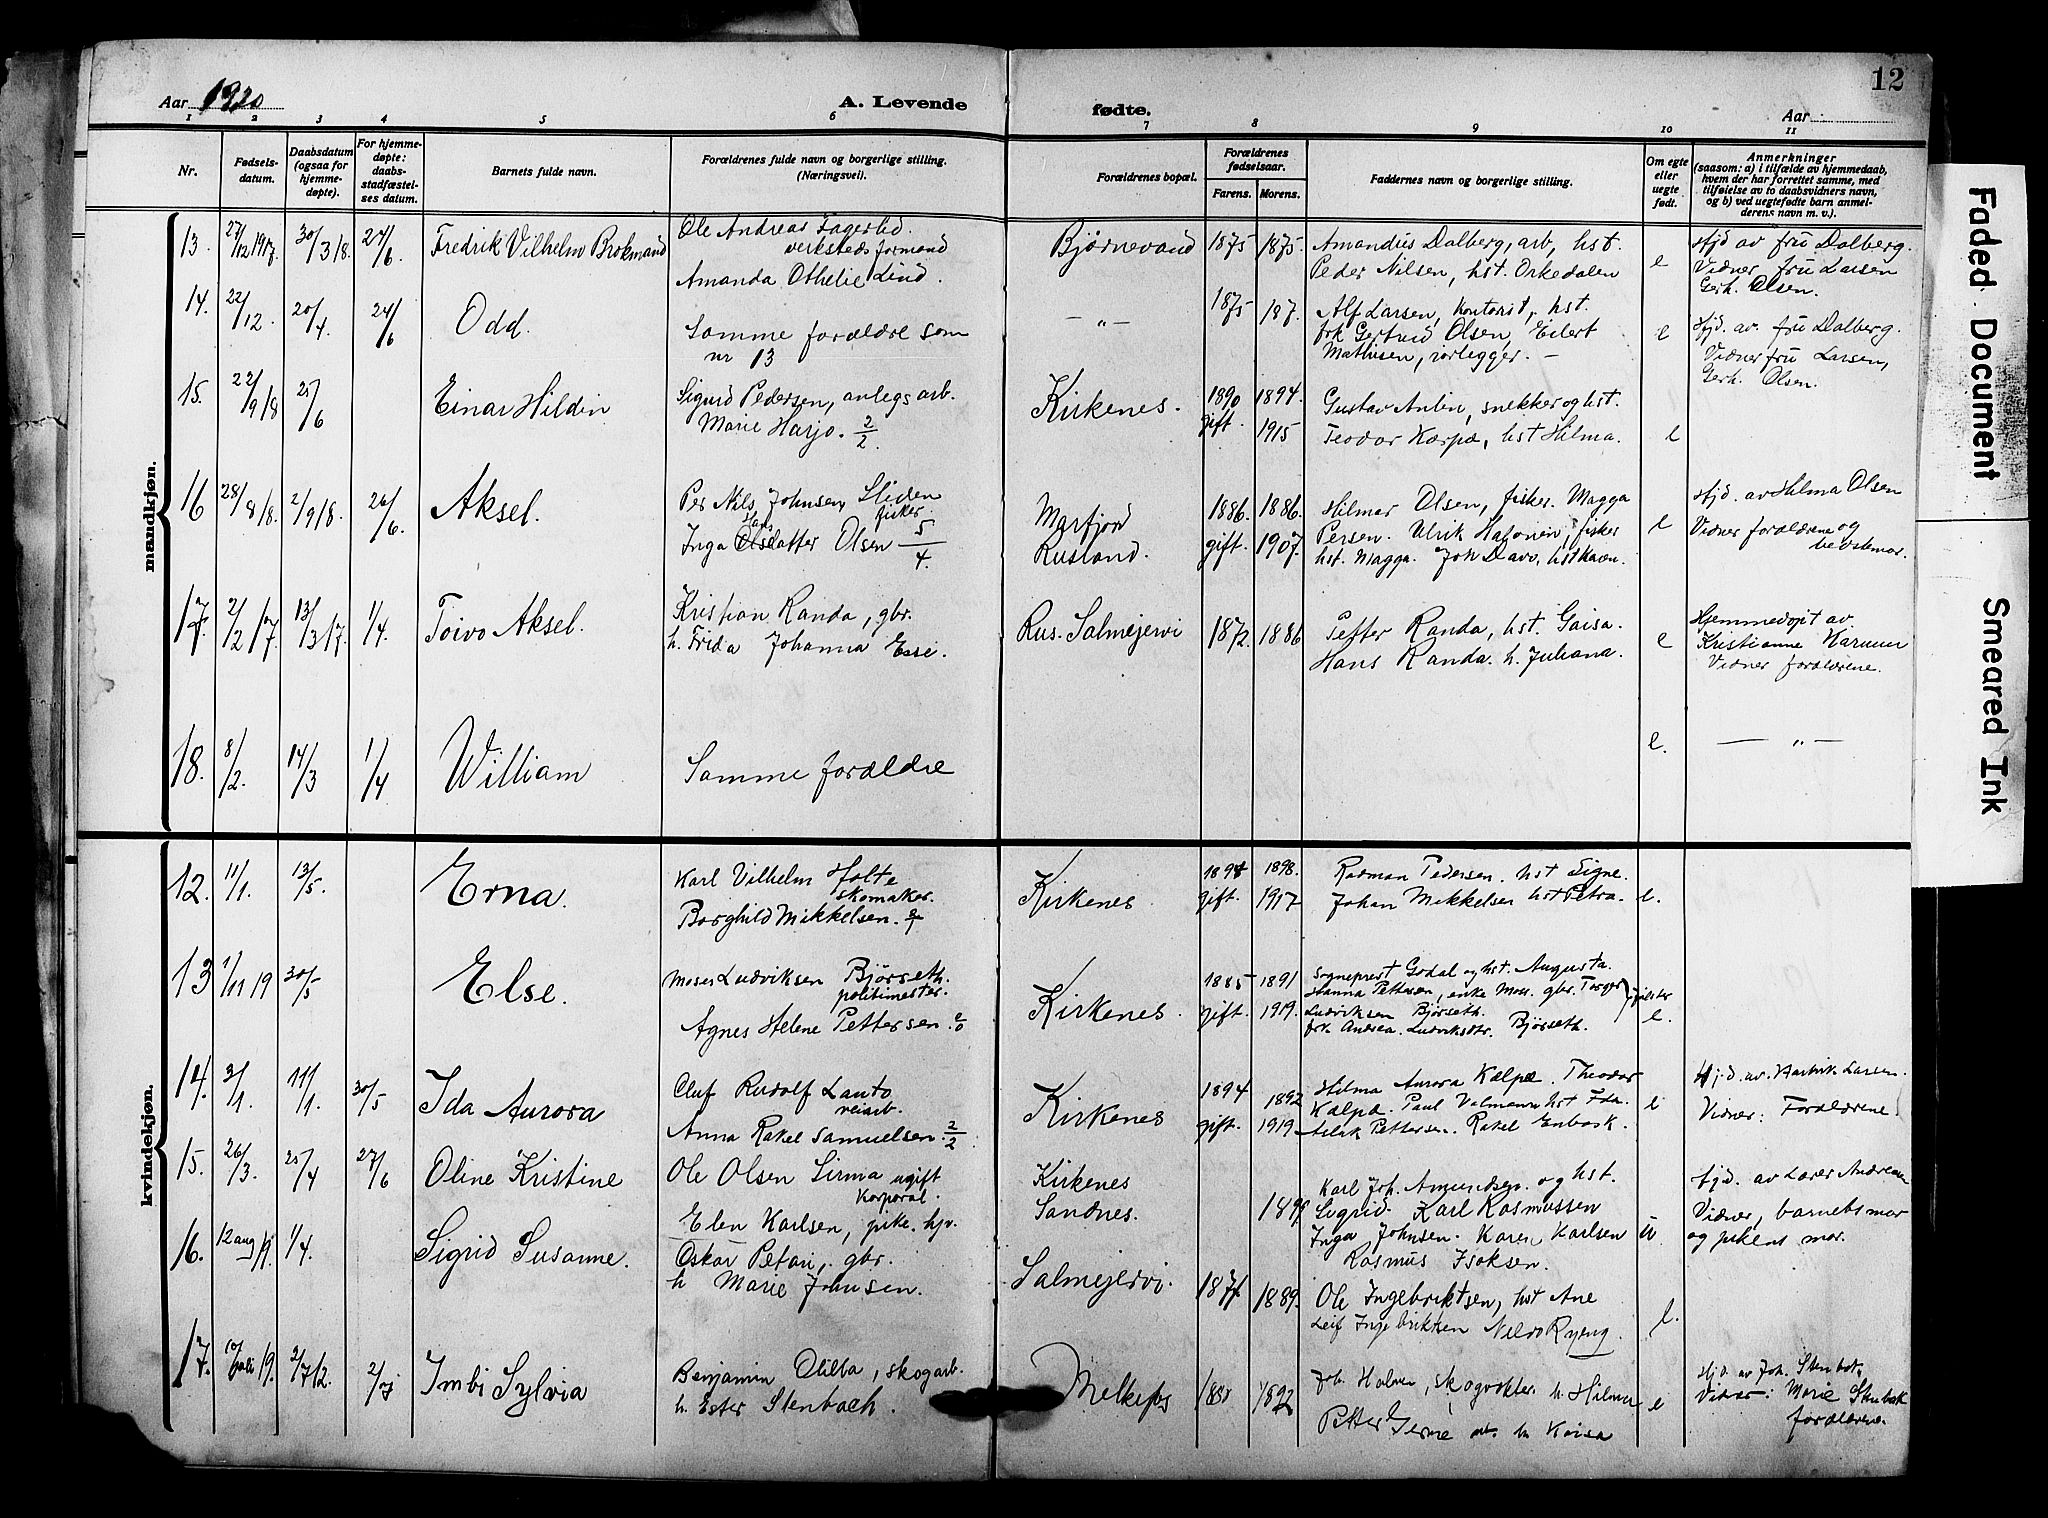 12
Aar 1920
A. Levende
fødte.
Aar
1 2 3 4 5 6 7 8 9 10 11
Nr.
Fødsels-
datum.
Daabsdatum
(ogsaa for
hjemme-
døpte).
For hjemme-
døpte:
daabs-
stadfæstel-
ses datum.
Barnets fulde navn.
Forældrenes fulde navn og borgerlige stilling.
(Næringsvei).
Forældrenes bopæl.
Forældrenes
fødselsaar.
Farens. Morens.
Faddernes navn og borgerlige stilling.
Om egte
eller
uegte
født.
Anmerkninger
(saasom: a) i tilfælde av hjemmedaab,
hvem der har forrettet samme, med
tilføielse av to daabsvidners navn,
og b) ved uegtefødte barn anmel-
derens navn m. v.).
mandkjøn.
13. 27/12 1917. 30/3 18. 24/6 Fredrik Vilhelm Brokmand
Ole Andreas Fagerlid
verkstedsformand
Amanda Othelie Lind.
Bjørnevand 1875 1875
Amandus Dalberg, arb, hst.
Peder Nilsen, hst. Orkedalen
e
Hjd av fru Dalberg.
Vidner fru Larsen
Gerh. Olsen.
14. 22/12. 20/4. 24/6 Odd.
Samme forældre som
nr 13
— " — 1875 187.
Alf Larsen, kontorist, hst.
frk Gertrud Olsen, Eilert
Mathisen, rørlegger. —
e
Hjd. av. fru Dalberg.
Vidner fru Larsen,
Gerh. Olsen.
15. 22/9 18 25/6 Einar Hildin
Sigurd Pedersen, anlegsarb.
Marie Harjo. 2/2
Kirkenes. 1890 1894.
gift. 1915
Gustav Anlin, snekker og hst.
Teodor Kærpæ, hst Hilma.
e
16 28/8 18. 2/9 18. 26/6. Aksel.
Per Nils Johnsen Sliden
fisker.
Inga Olsen 5/4.
Rusland.
1886. 1886.
gift. 1907.
Hilmar Olsen, fisker. Magga
Persen. Ulrik Halonen, fisker
hst. Magga.
e
Hjd. av Hilma Olsen
Vidner forældrene og
bedstemor.
17. 2/2 17. 13/3 17. 1/4. Toivo Aksel.
Kristian Randa, gbr.
h. Frida Johanna Esse.
Rus. Salmejervi 1872. 1886
Petter Randa, hst. Gaisa.
Hans Randa. h. Juliana.
e
Hjemmedøpt av.
Kristianne
Vidner forældrene.
18. 8/2. 14/3 1/4 William
Samme forældre
e. — " —
kvindekjøn.
12. 11/1. 13/5. Erna.
Karl Vilhelm Holte
skomaker.
Borghild Mikkelsen.
Kirkenes 1898.
gift. 1917
Rasman Pedersen. hst Signe.
Johan Mikkelsen hst Petra.
e.
13 1/11 19 30/5 Else.
Moses Ludviksen Bjørseth.
politimester.
Agnes Helene Pettersen. 0/0
Kirkenes. 1885 1891
gift. 1919.
Sogneprest Godal og hst. Augusta.
Hanna Pettersen, enke Moss. gbr. Torger
Ludviksen Bjørseth.
frk. Andrea Ludviksdtr. Bjørseth.
e.
14. 3/1. 11/1. 30/5 Ida Aurora
Oluf Rudolf Lanto
veiarb.
Anna Rakel Samuelsen. 2/2
Kirkenes 1894 1892
gift. 1919
Hilma Aurora Kælpæ. Theodor
Kælpæ. Paul Valmann hst Ida.
Aslak Pettersen. Rakel Enbask.
Hjd. av. Larsen.
Vidner: Forældrene.
15. 26/3. 25/4 27/6 Oline Kristine
Ole Olsen Sirma ugift
korporal.
Elen Karlsen, pike. hjv.
Kirkenes
Sandnes.
Karl Joh. Amundsen. og hst.
Sigrid. Karl Rasmussen
Inga Johnsen. Karen Karlsen
Rasmus Isaksen.
u.
Hjd. av Lærer Andreas
Vidner, barnets mor
og pikens mor.
16. 12 aug 19. 1/4. Sigrid Susanne.
Oskar Petari, gbr.
h Marie Johnsen.
Salmejervi. 1871. 1889.
Ole Ingebriktsen, hst Ane
Leif Ingebriktsen Ryeng.
e.
17. juli 19. 2/7 12. 2/7 Imbi Sylvia
Benjamin Olilla, skogarb.
h. Ester Stenbach.
Melkefos 1892
Joh. Holmen, skogvokter h. Hilma
Petter h Kaisa
e
Hjd. av Joh. Stenbak.
Vidner: Marie Stenbak
forældrene.
Faded Document
Smeared Ink